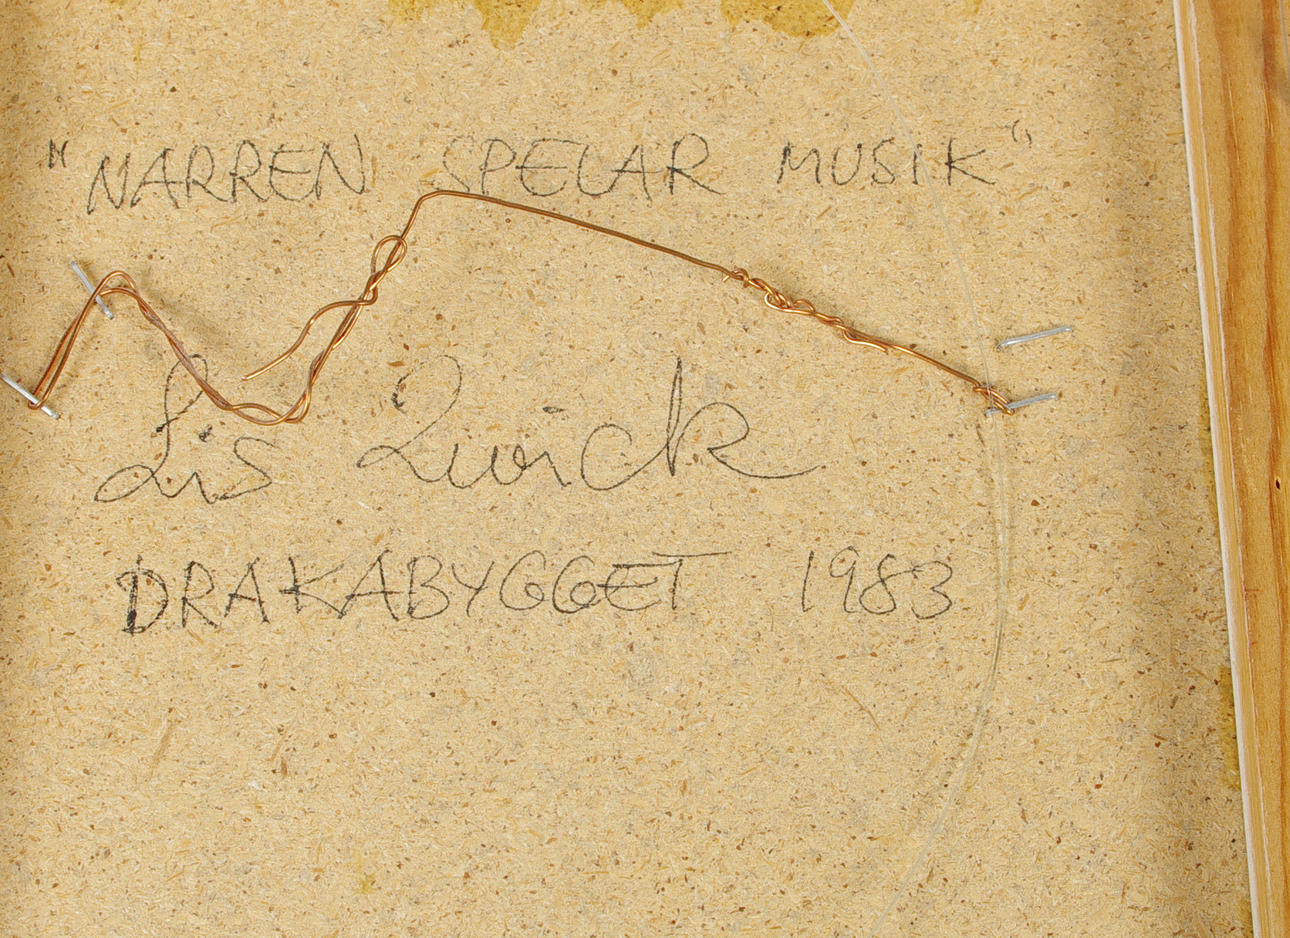 "NARREN SPELAR MUSIK"
Lis Zwick
DRAKABYGGET 1983